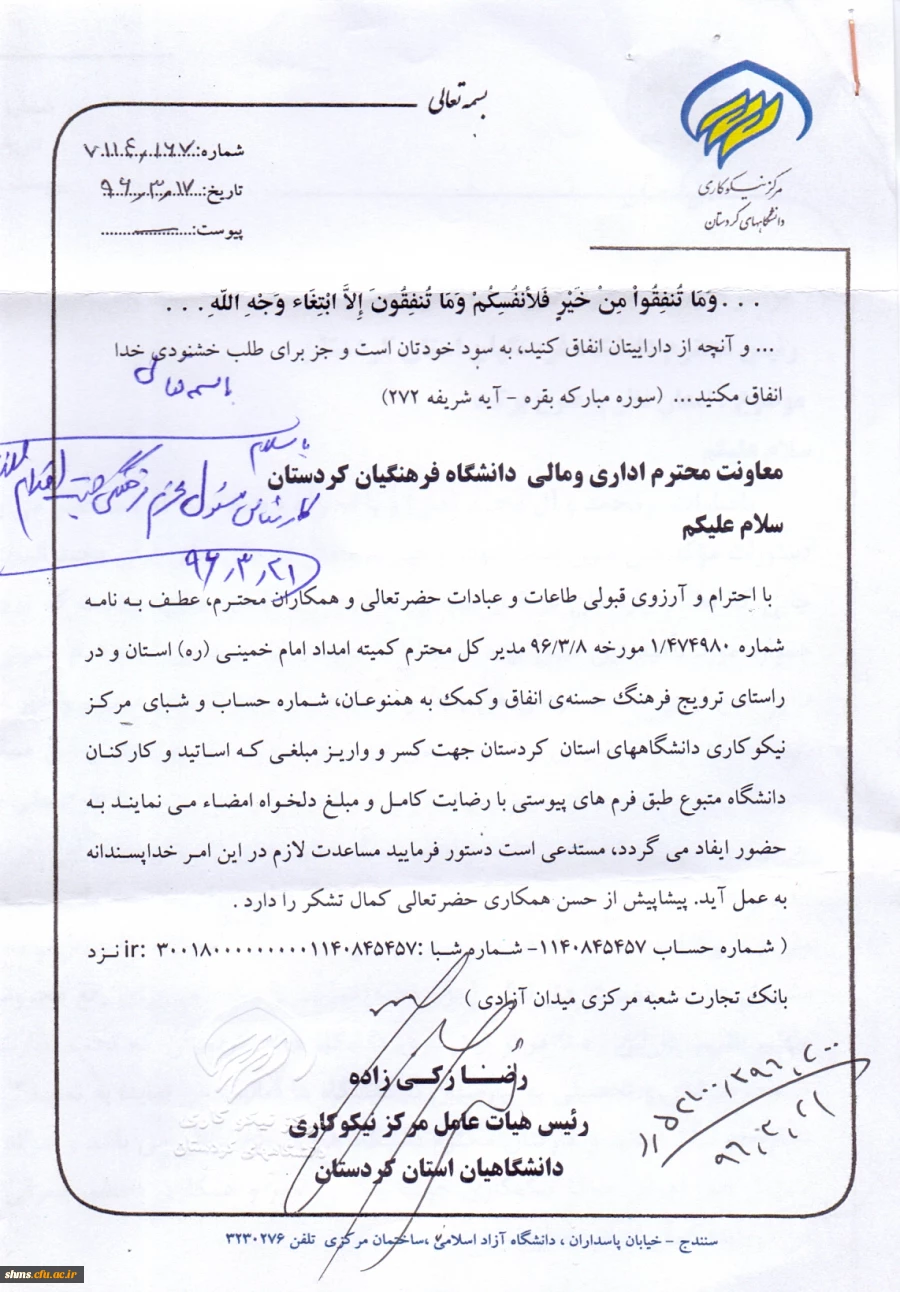 بسمه تعالی
مرکز نیکوکاری
دانشگاههای کردستان
شماره:
تاریخ: ۹۶٫۳٫۱۷
پیوست:
... وَمَا تُنفِقُواْ مِنْ خَيْرٍ فَلأنفُسِكُمْ وَمَا تُنفِقُونَ إِلاَّ ابْتِغَاء وَجْهِ اللّهِ...
... و آنچه از داراییتان انفاق کنید، به سود خودتان است و جز برای طلب خشنودی خدا
انفاق مکنید... (سوره مبارکه بقره - آیه شریفه ۲۷۲)
باسمه تعالی
با سلام
کارشناس مسئول محترم فرهنگی جهت اقدام
۹۶٫۳٫۲۱
معاونت محترم اداری ومالی دانشگاه فرهنگیان کردستان
سلام علیکم
با احترام و آرزوی قبولی طاعات و عبادات حضرتعالی و همکاران محترم، عطف به نامه
شماره ۱/۴۷۴۹۸۰ مورخه ۹۶/۳/۸ مدیر کل محترم کمیته امداد امام خمینی (ره) استان و در
راستای ترویج فرهنگ حسنه‌ی انفاق وکمک به همنوعان، شماره حساب و شبای مرکز
نیکوکاری دانشگاههای استان کردستان جهت کسر و واریز مبلغی که اساتید و کارکنان
دانشگاه متبوع طبق فرم های پیوستی با رضایت کامل و مبلغ دلخواه امضاء می نمایند به
حضور ایفاد می گردد، مستدعی است دستور فرمایید مساعدت لازم در این امر خداپسندانه
به عمل آید. پیشاپیش از حسن همکاری حضرتعالی کمال تشکر را دارد .
( شماره حساب ۱۱۴۰۸۴۵۴۵۷- شماره شبا :ir: ۳۰۰۱۸۰۰۰۰۰۰۰۰۰۰۱۱۴۰۸۴۵۴۵۷ نزد
بانک تجارت شعبه مرکزی میدان آزادی )
رضا زکی زاده
رئیس هیات عامل مرکز نیکوکاری
دانشگاهیان استان کردستان
۹۶٫۳٫۲۱
سنندج - خیابان پاسداران ، دانشگاه آزاد اسلامی ،ساختمان مرکزی تلفن ۳۲۳۰۲۷۶
shms.cfu.ac.ir